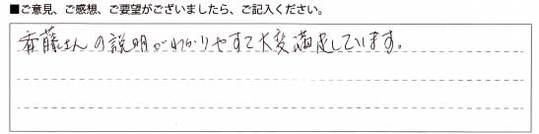 ■ご意見、ご感想、ご要望がございましたら、ご記入ください。
斉藤さんの説明がわかりやすくて大変満足しています。